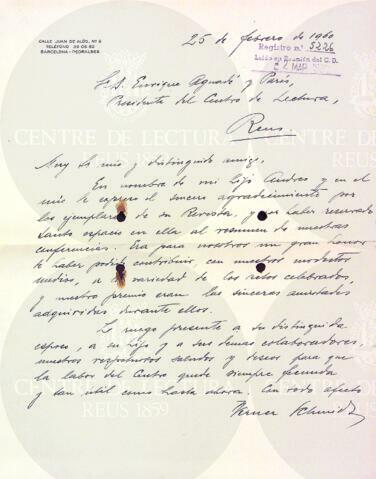 CALLE JUAN DE ALÓS, Nº 6
TELÉFONO 39 06 82
BARCELONA - PEDRALBES
25 de febrero de 1960
Registro n.º 5226
Leído en Reunión del C. D.
MAR
Sr. D. Enrique Aguadé y Parés,
Presidente del Centro de Lectura,
Reus.
CENTRE DE LECTURA
REUS 1859
Muy Sr. mío y distinguido amigo,
En nombre de mi hijo Andres y en el
mío le expreso el sincero agradecimiento por
los ejemplares de su Revista, y por haber reservado
tanto espacio en ella al resumen de nuestras
conferencias. Era para nosotros un gran honor
de haber podido contribuir, con nuestros modestos
medios, a la variedad de los actos celebrados,
y nuestro premio eran las sinceras amistades
adquiridas durante ellos.
Le ruego presente a su distinguida
esposa, a su hijo y a sus demas colaboradores,
nuestros respetuosos saludos y deseos para que
la labor del Centro quede siempre fecunda
y tan util como hasta ahora. Con todo afecto
Werner Schmidt
REUS 1859